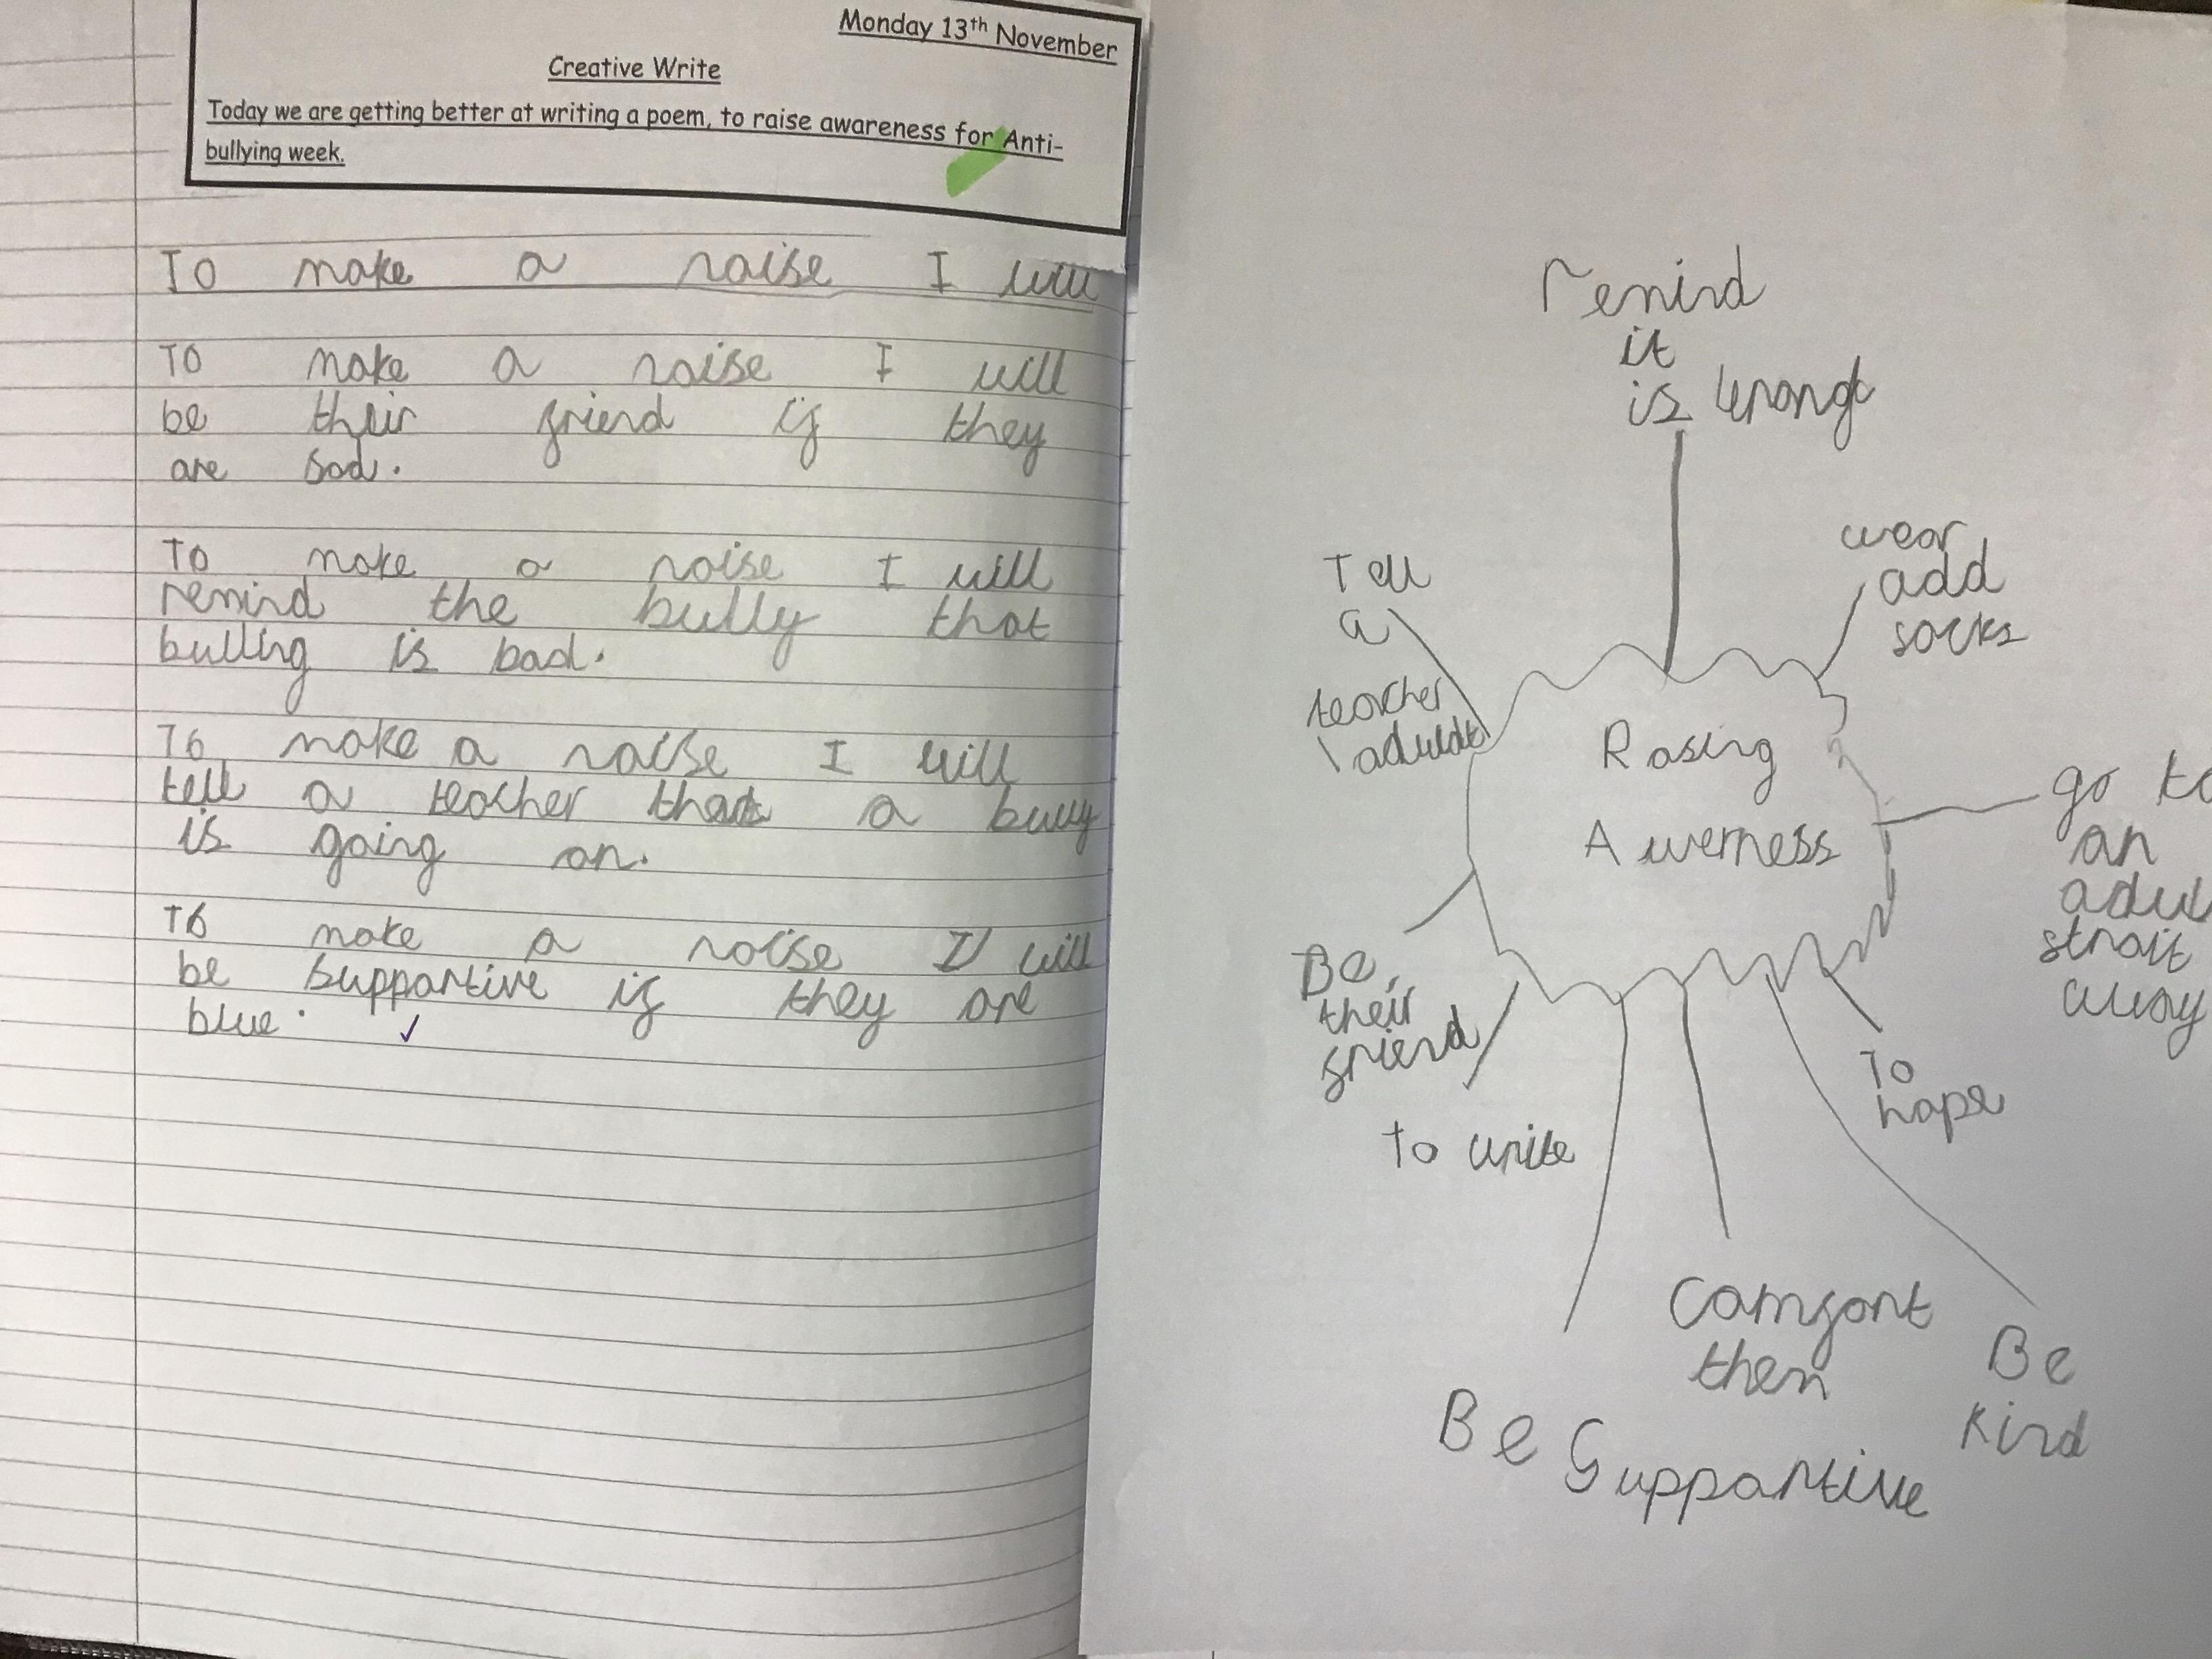 Monday 13th November
Creative Write
Today we are getting better at writing a poem, to raise awareness for Anti-
bullying week.
To make a noise I will
To make a noise I will
be their friend if they
are sad.
To make a noise I will
remind the bully that
bulling is bad.
To make a noise I will
tell a teacher that a bully
is going on.
To make a noise I will
be supportive if they are
blue.
remind
it
is wrong
wear
add
socks
Tell
a
teacher
\ adult
Rasing
Awerness
go to
an
adul
strait
away
Be
their
friend
To unite
To
hope
Comfort
them
Be
Kind
Be Supportive